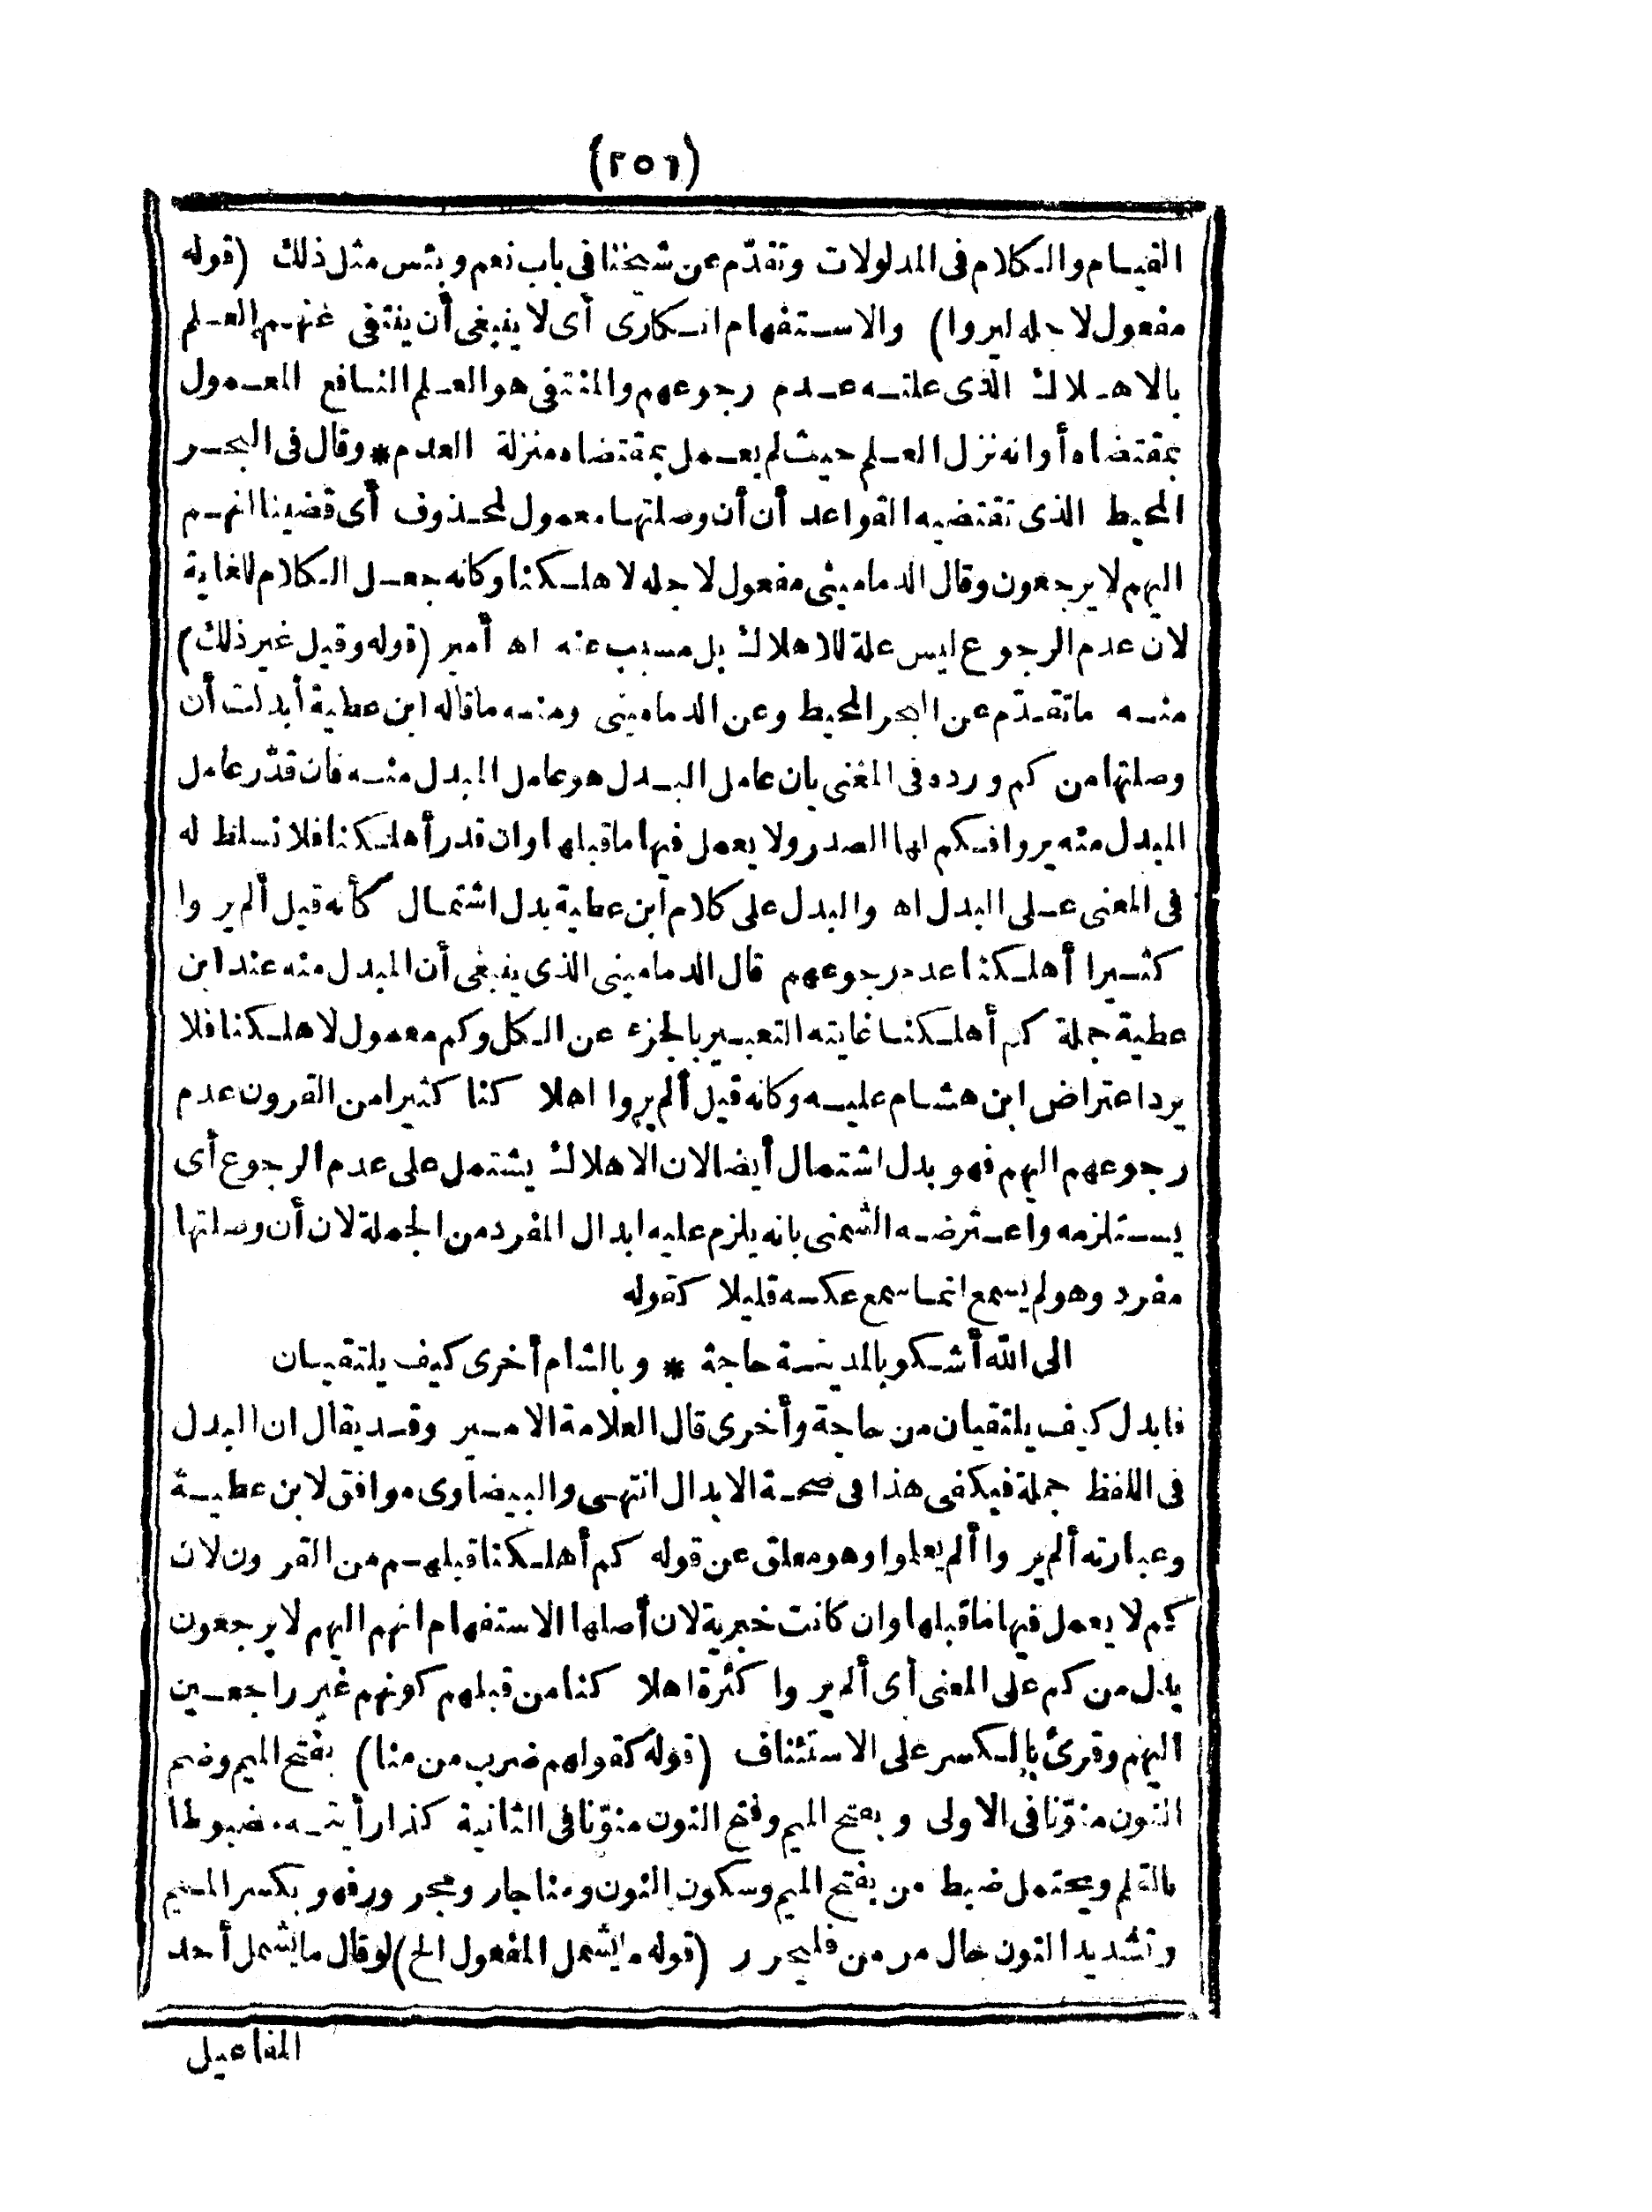 (٢٥٦)
القيام والكلام فى المدلولات وتقدّم عن شيخنا فى باب نعم وبئس مثل ذلك (قوله
مفعول لاجله ليروا) والاستفهام انكارى أى لا ينبغى أن ينتفى عنهم العلم
بالاهلاك الذى علته عدم رجوعهم والمنتفى هو العلم النافع المعمول
بمقتضاه أو انه نزل العلم حيث لم يعمل بمقتضاه منزلة العدم * وقال فى البحر
المحيط الذى تقتضيه القواعد أن أن وصلتها معمول لمحذوف أى قضينا انهم
اليهم لا يرجعون وقال الدمامينى مفعول لاجله لاهلكنا وكانه جعل الكلام للغاية
لان عدم الرجوع ليس علة للاهلاك بل مسبب عنه اه أمير (قوله وقيل غير ذلك)
منه ماتقدّم عن البحر المحيط وعن الدمامينى ومنه ماقاله ابن عطية أبدلت أن
وصلتها من كم ورده فى المغنى بان عامل البدل هو عامل المبدل منه فان قدّر عامل
المبدل منه يروا فكم لها الصدر ولا يعمل فيها ماقبلها وان قدر أهلكنا فلا تسلط له
فى المعنى على البدل اه والبدل على كلام ابن عطية بدل اشتمال كأنه قيل ألم يروا
كثيرا أهلكنا عدم رجوعهم قال الدمامينى الذى ينبغى أن المبدل منه عند ابن
عطية جملة كم أهلكنا غايته التعبير بالجزء عن الكل وكم معمول لاهلكنا فلا
يرد اعتراض ابن هشام عليه وكانه قيل ألم يروا اهلا كنا كثيرا من القرون عدم
رجوعهم اليهم فهو بدل اشتمال أيضا لان الاهلاك يشتمل على عدم الرجوع أى
يستلزمه واعترضه الشمنى بانه يلزم عليه ابدال المفرد من الجملة لان أن وصلتها
مفرد وهو لم يسمع انما سمع عكسه قليلا كقوله
الى الله أشكو بالمدينة حاجة * وبالشام أخرى كيف يلتقيان
فابدل كيف يلتقيان من حاجة وأخرى قال العلامة الامير وقد يقال ان البدل
فى اللفظ جملة فيكفى هذا فى صحة الابدال انتهى والبيضاوى موافق لابن عطية
وعبارته ألم يروا ألم يعلموا وهو معلق عن قوله كم أهلكنا قبلهم من القرون لان
كم لا يعمل فيها ماقبلها وان كانت خبرية لان أصلها الاستفهام انهم اليهم لا يرجعون
بدل من كم على المعنى أى ألم يروا كثرة اهلا كنا من قبلهم كونهم غير راجعين
اليهم وقرئ بالكسر على الاستئناف (قوله كقولهم ضرب من منا) بفتح الميم وضم
النون منوّنا فى الاولى وبفتح الميم وفتح النون منوّنا فى الثانية كذا رأيته مضبوطا
بالقلم ويحتمل ضبط من بفتح الميم وسكون النون ومنا جار ومجرور فهو بكسر الميم
وتشديد النون حال مر من فليحرر (قوله مايشمل المفعول الخ) لو قال مايشمل أحد
المفاعيل